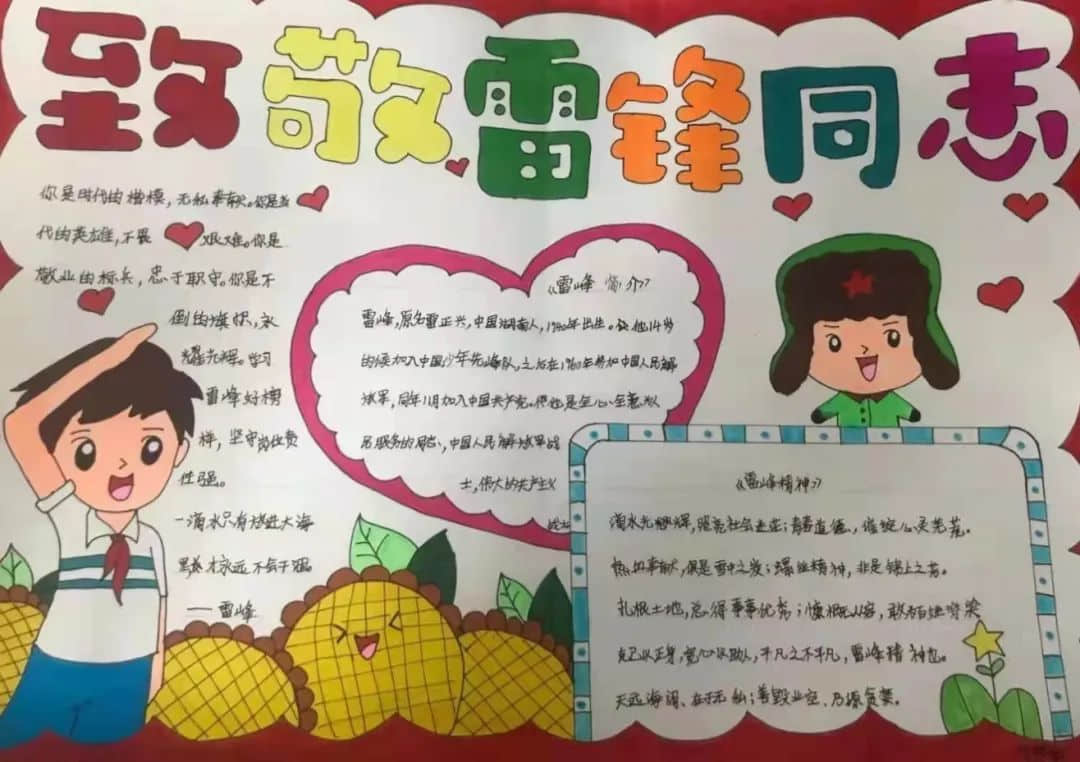 致敬雷锋同志
你是时代的楷模，无私奉献。你是当
代的英雄，不畏艰难。你是
敬业的标兵，忠于职守。你是不
倒的旗帜，永
耀光辉。学习
雷峰好榜
样，坚守岗位责
任强。
一滴水只有放进大海
里才永远不会干涸
——雷峰
《雷峰简介》
雷峰，原名雷正兴，中国湖南人，1940年出生。在他14岁
的候加入中国少年先峰队，之后在1960年参加中国人民解
放军，同年11月加入中国共产党。他也是全心全意为人
民服务的
中国人民解放军战
士，伟大的共产主义
战士
《雷峰精神》
滴水光辉，照亮社会进程；青春道德，催绽心灵芜花。
热的奉献，俱是雪中之炭；螺丝精神，非是锦上之花。
扎根土地，总得事事优秀；慷慨从容，
克己以正身，宽心以助人，平凡之不平凡，雷峰精神也。
天远海阔、在于无私；善毁业空、乃源贪婪。